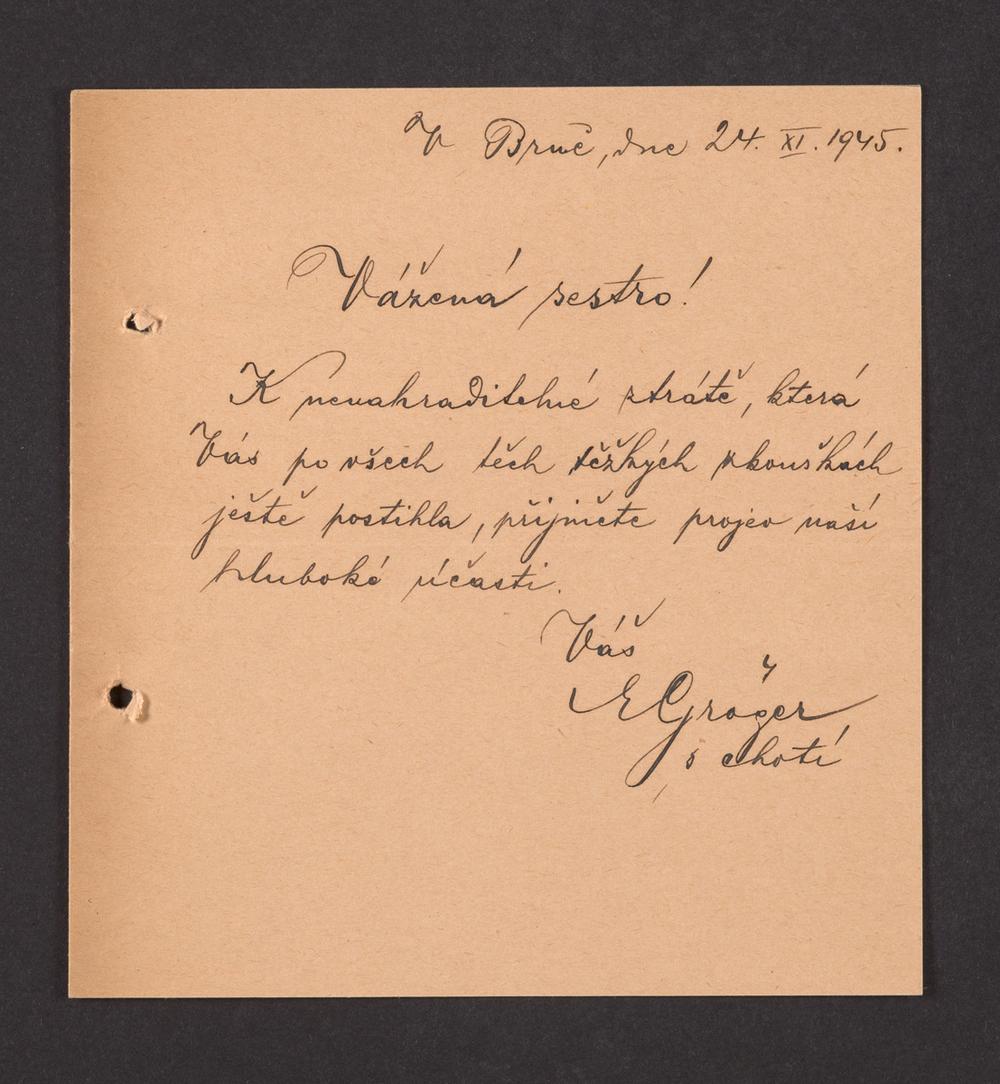 V Brně, dne 24. XI. 1945.
Vážená sestro!
K nenahraditelné ztrátě, která
Vás po všech těch těžkých zkouškách
ještě postihla, přijměte projev naší
hluboké účasti.
Váš
E Gröger
s chotí